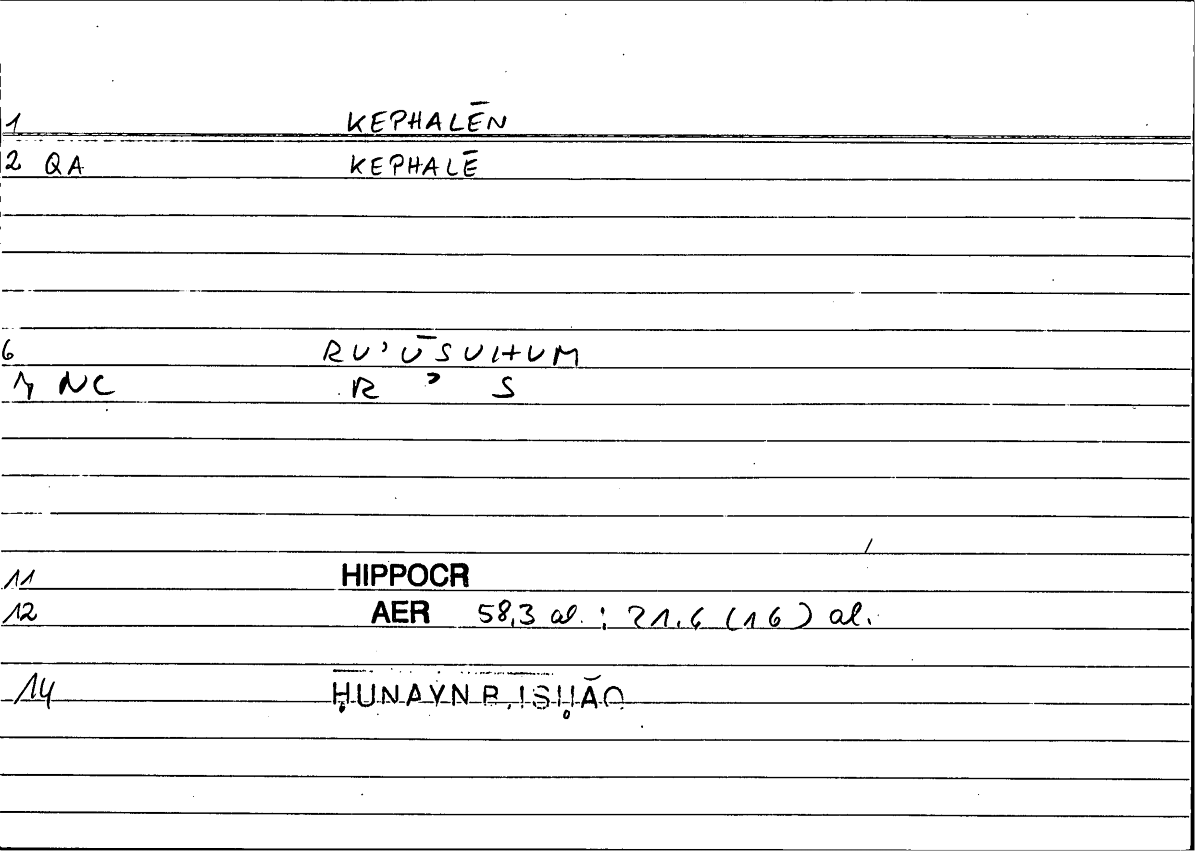 1 KEPHALĒN
2 QA KEPHALĒ
6 RU'ŪSUHUM
7 NC R ' S
11 HIPPOCR
12 AER 58,3 al. ; 21.6 (16) al.
14 ḤUNAYN B. ISḤĀQ